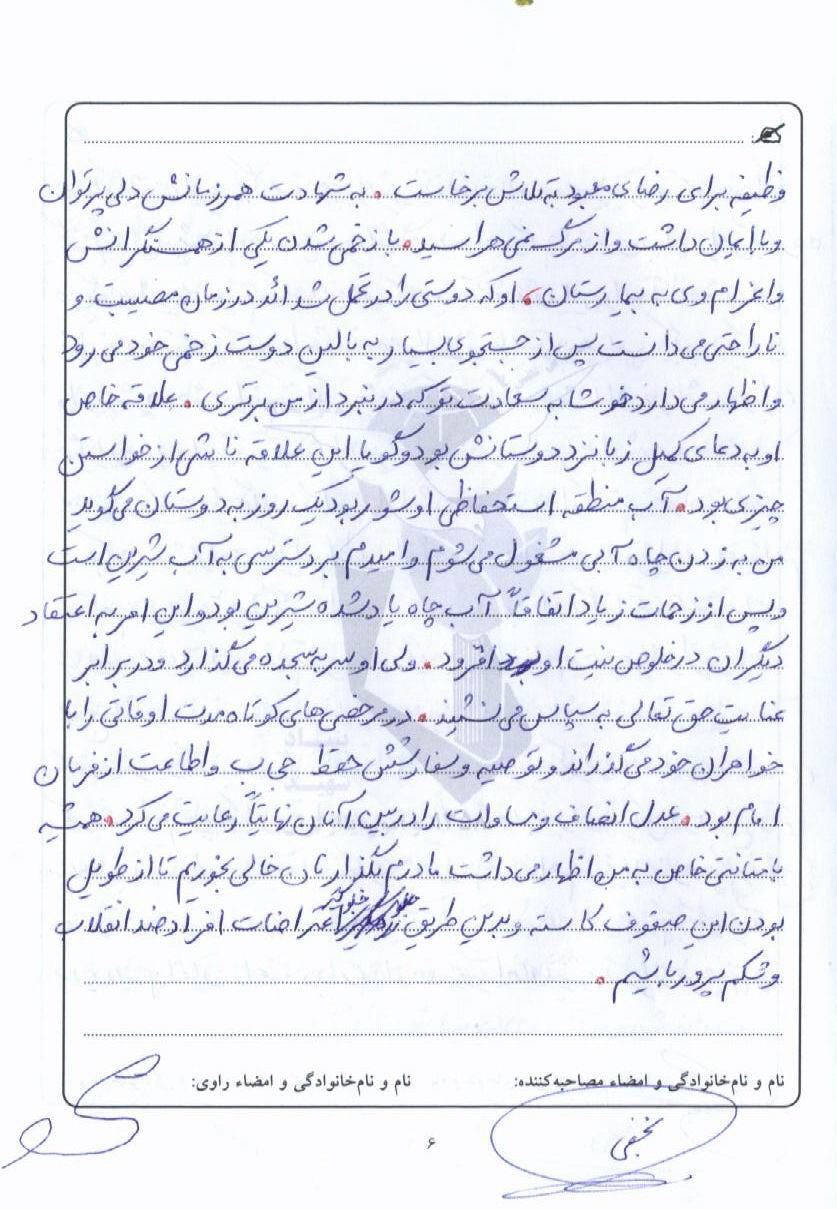 وظیفه برای رضای معبود به تلاش برخاست . به شهادت همرزمانش دلی پرتوان
وبا ایمان داشت و از مرگ نمی هراسید . با زخمی شدن یکی از همسنگرانش
و اعزام وی به بیمارستان ، او که دوستی را در تحمل شدائد در زمان مصیبت و
ناراحتی می دانست پس از جستجوی بسیار به بالین دوست زخمی خود می رود
و اظهار می دارد خوشا به سعادت تو که در نبرد از من برتری . علاقه خاص
او به دعای کمیل زبانزد دوستانش بود و گویا این علاقه ناشی از خواستن
چیزی بود . آب منطقه استحفاظی او شور بود یک روز به دوستان می گوید
من به زدن چاه آبی مشغول می شوم و امیدم بر دسترسی به آب شیرین است
و پس از زحمات زیاد اتفاقاً آب چاه یاد شده شیرین بود و این امر به اعتقاد
دیگران در خلوص نیت او افزود . ولی او سر به سجده می گذارد و در برابر
عنایت حق تعالی به سپاس می نشیند . در مرخصی های کوتاه مدت اوقاتی را با
خواهران خود می گذراند و توصیه و سفارشش حفظ حجاب و اطاعت از فرمان
امام بود . عدل انصاف و مساوات را در بین آنان نهایتاً رعایت می کرد . همیشه
با متانتی خاص به من اظهار می داشت مادرم بگذار نان خالی بخوریم تا از طویل
بودن این صفوف کاسته و بدین طریق جلوگیر اعتراضات افراد ضد انقلاب
و شکم پرور باشیم .
نام و نام‌خانوادگی و امضاء مصاحبه‌کننده: نام و نام‌خانوادگی و امضاء راوی:
نجفی
۶